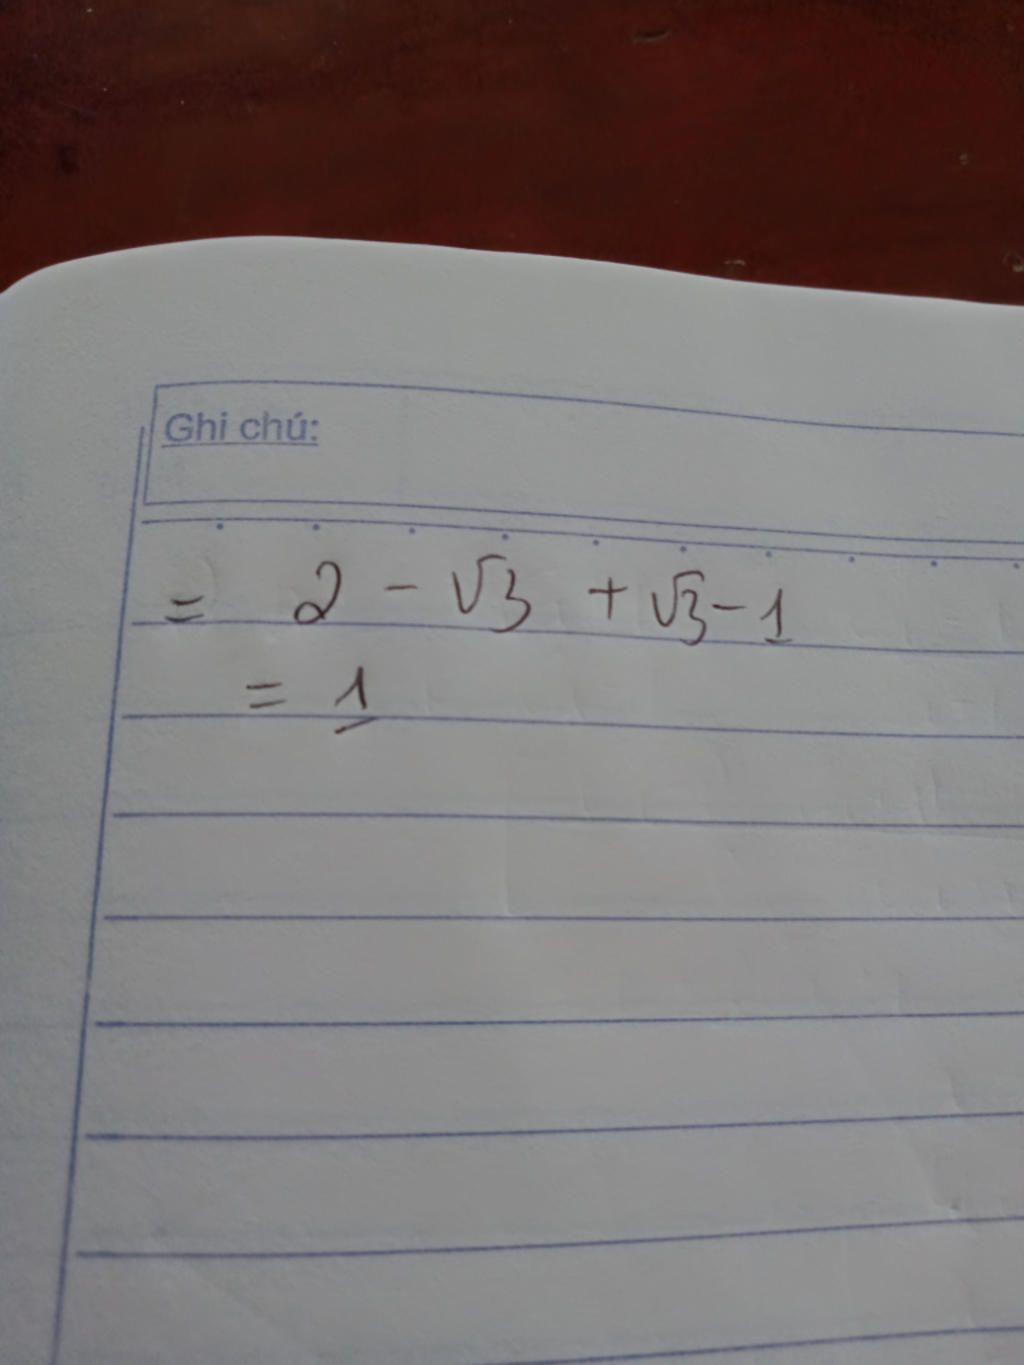 Ghi chú:
= 2 - √3 + √3 - 1
= 1